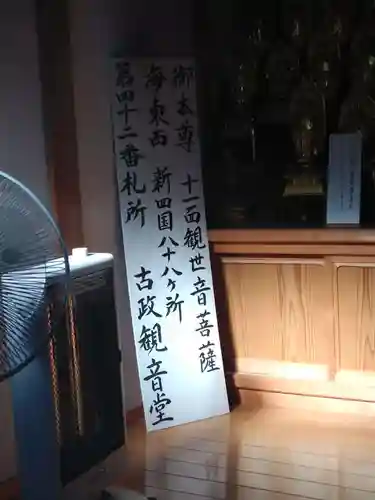 御本尊 十一面観世音菩薩
海東西 新四国八十八ヶ所
第四十二番札所
古政観音堂